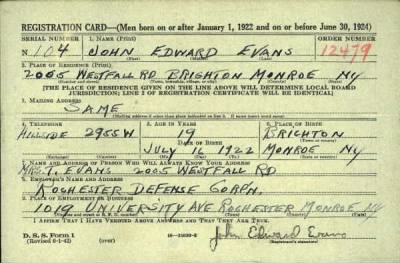 REGISTRATION CARD—(Men born on or after January 1, 1922 and on or before June 30, 1924)
SERIAL NUMBER 1. NAME (Print) ORDER NUMBER
N 104 JOHN EDWARD EVANS 12479
(First) (Middle) (Last)
2. PLACE OF RESIDENCE (Print)
2005 WESTFALL RD BRIGHTON MONROE NY
[THE PLACE OF RESIDENCE GIVEN ON THE LINE ABOVE WILL DETERMINE LOCAL BOARD
JURISDICTION; LINE 2 OF REGISTRATION CERTIFICATE WILL BE IDENTICAL]
3. MAILING ADDRESS
SAME
[Mailing address if other than place indicated on line 2. If same insert word same]
4. TELEPHONE 5. AGE IN YEARS 6. PLACE OF BIRTH
HILLSIDE 2955W 19 BRIGHTON
DATE OF BIRTH
JULY 16 1922 MONROE NY
(Exchange) (Number) (Mo.) (Day) (Yr.) (State or country)
7. NAME AND ADDRESS OF PERSON WHO WILL ALWAYS KNOW YOUR ADDRESS
MRS. T. EVANS 2005 WESTFALL RD
8. EMPLOYER'S NAME AND ADDRESS
ROCHESTER DEFENSE CORPN.
9. PLACE OF EMPLOYMENT OR BUSINESS
1019 UNIVERSITY AVE ROCHESTER MONROE NY
(Number and street or R. F. D. number) (Town) (County) (State)
I AFFIRM THAT I HAVE VERIFIED ABOVE ANSWERS AND THAT THEY ARE TRUE.
D. S. S. Form 1
(over)
John Edward Evans
(Registrant's signature)